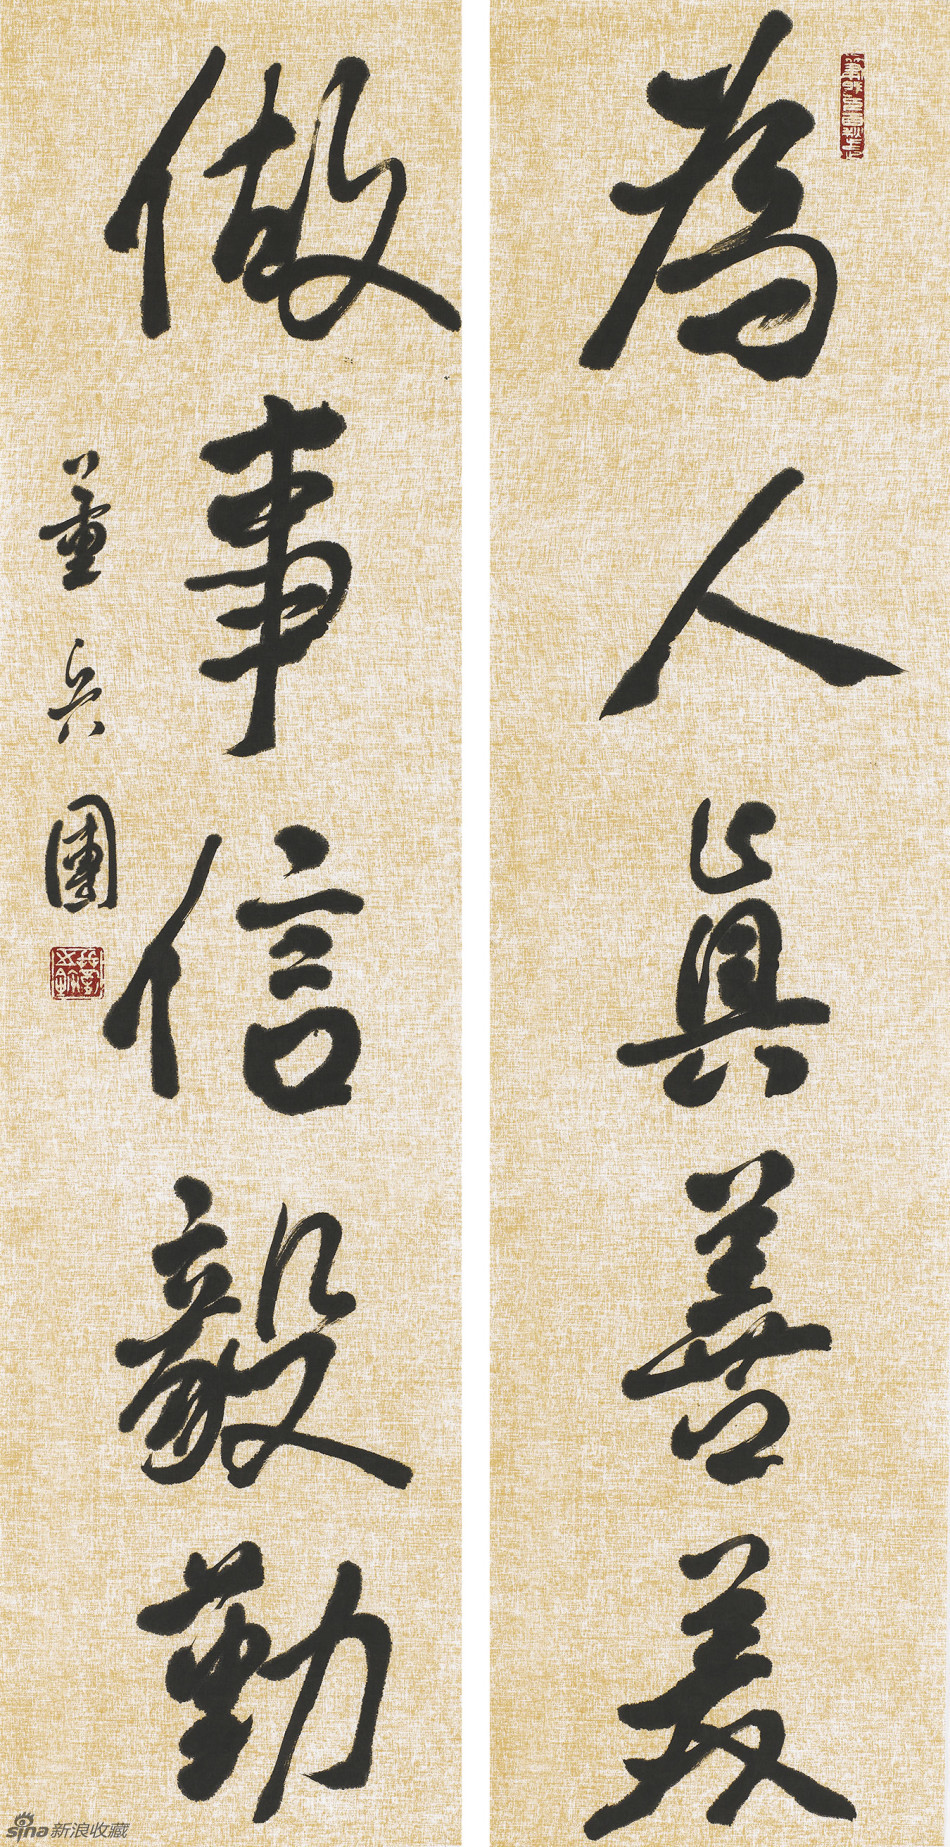 為人真善美
做事信毅勤
董兵團
sina 新浪收藏